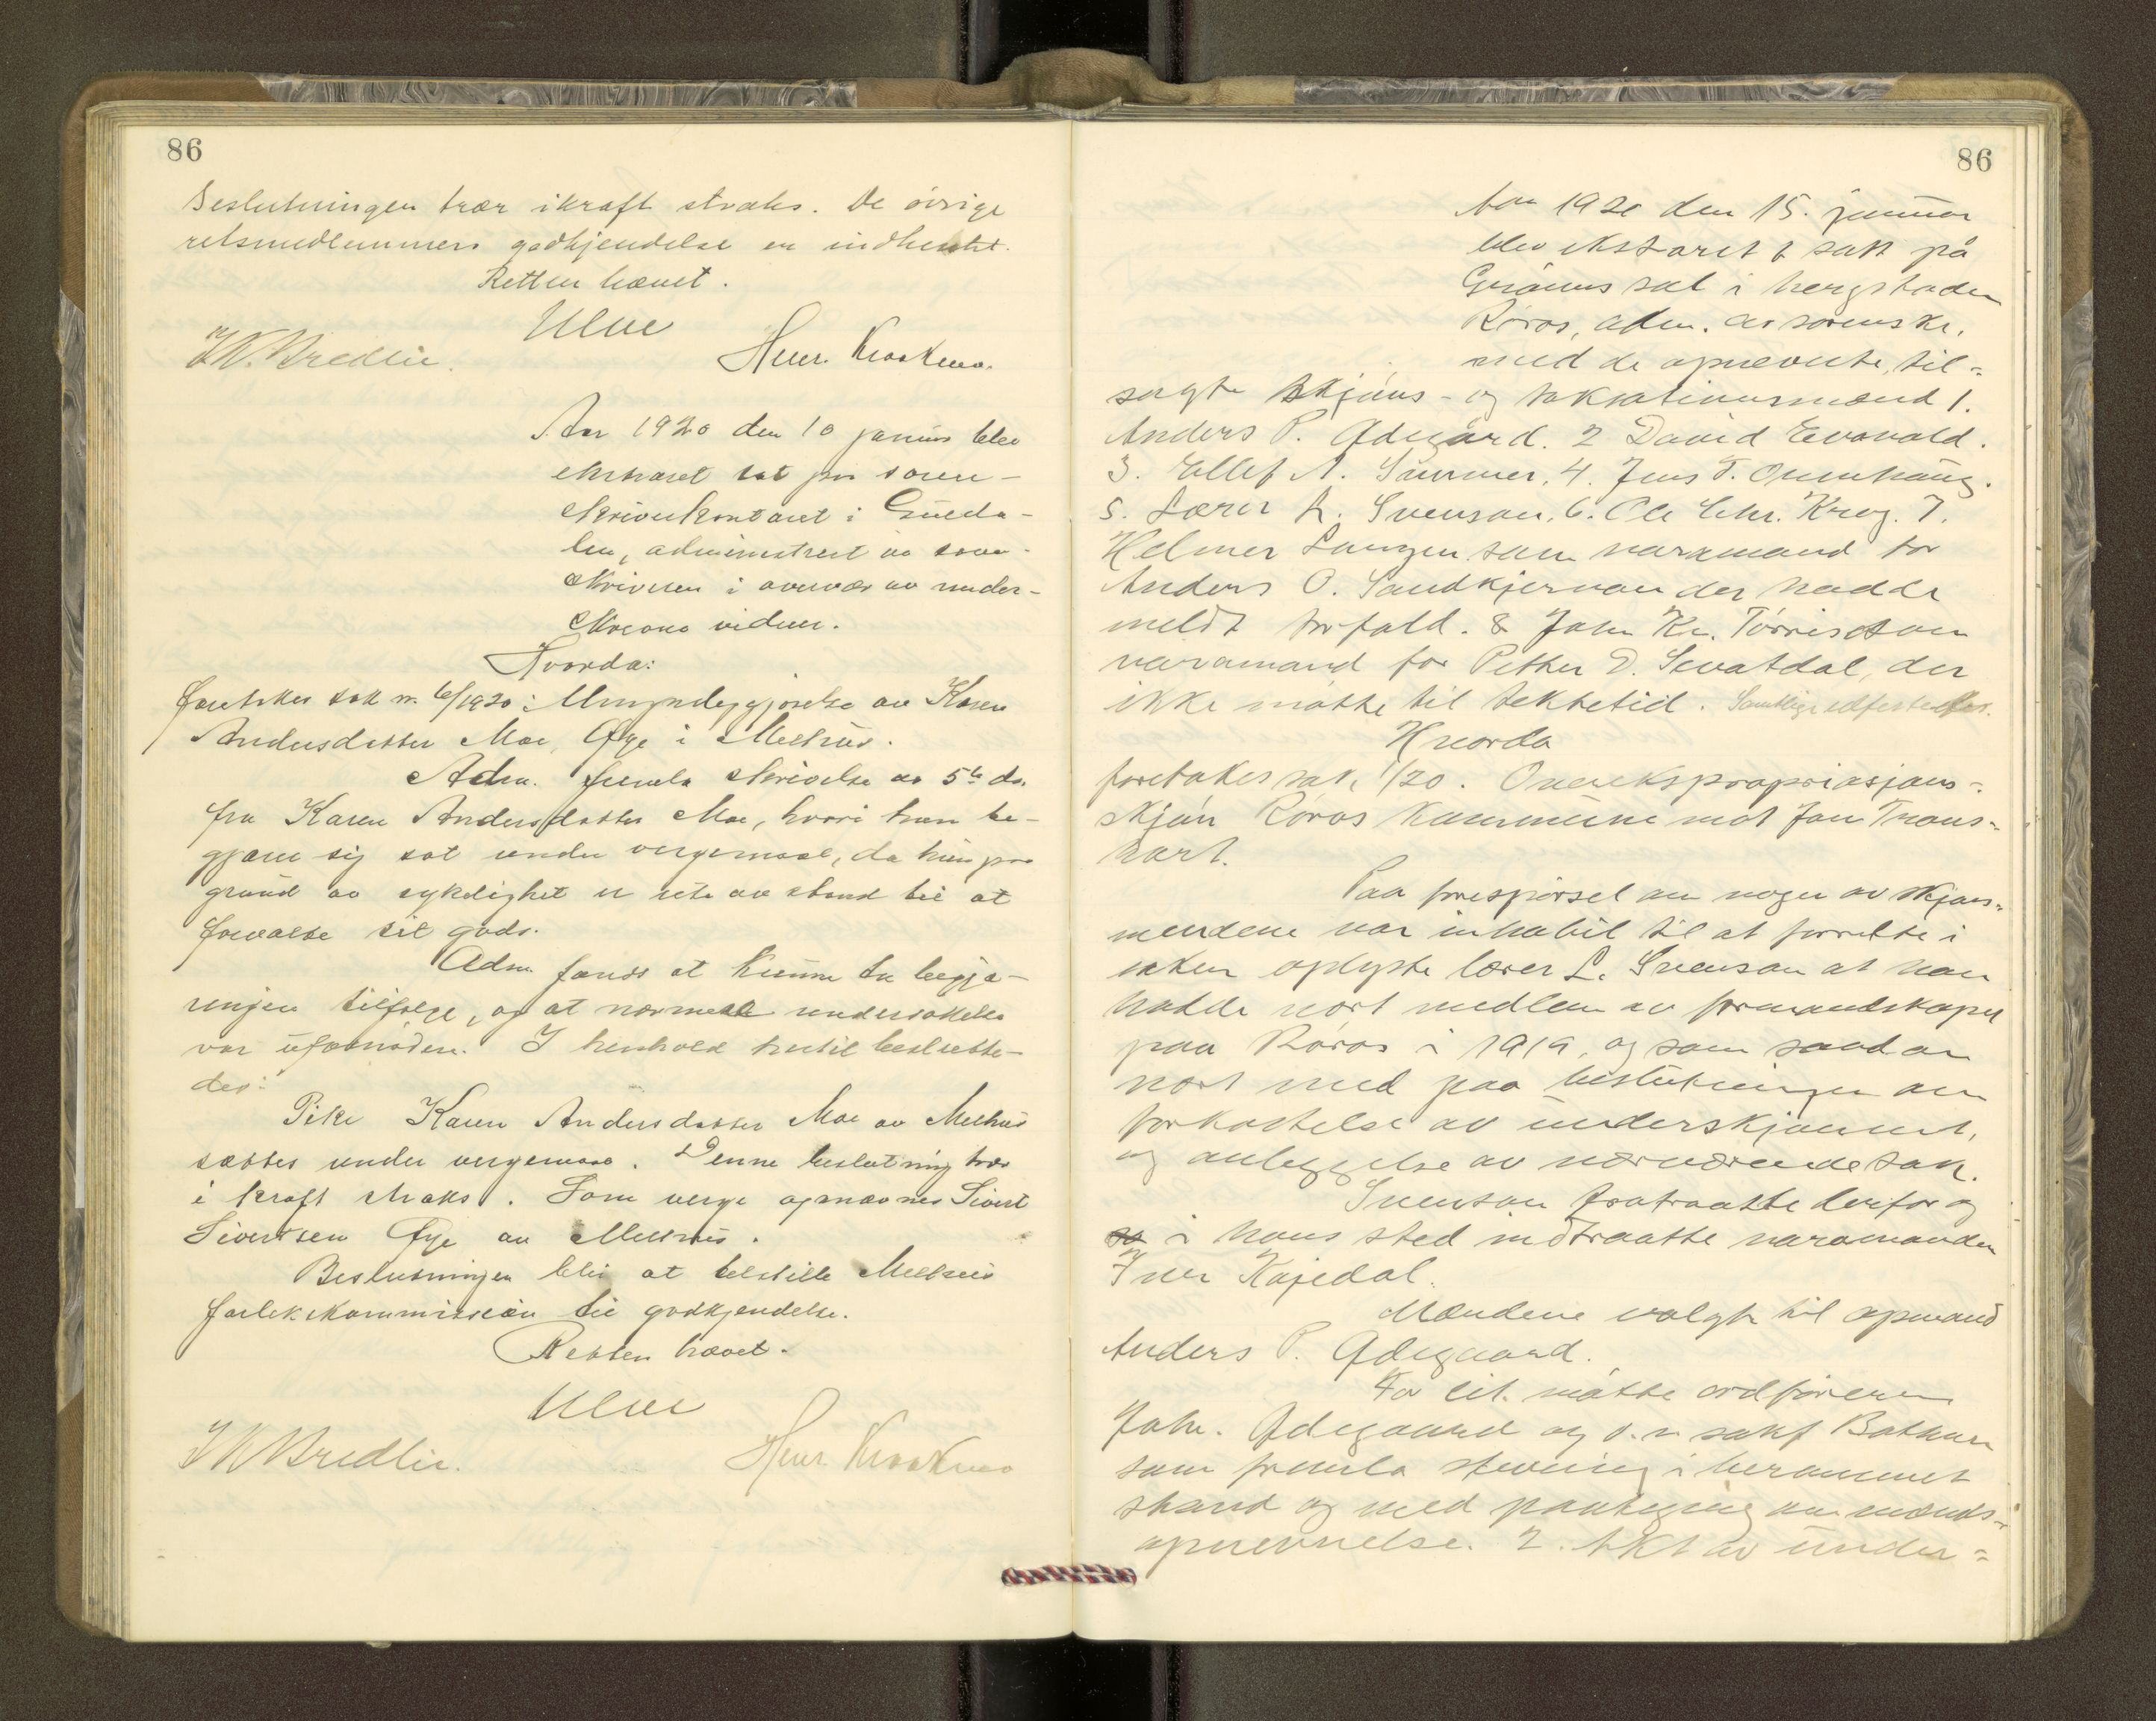 86
Beslutningen trær ikraft straks. De øvrige
retsmedlemmers godkjendelse er indhentet.
Retten hævet.
Ulve
J K. Bredlie. Henr. Krokmo.
Aar 1920 den 10 januar blev
ekstraret sat paa soren-
skriverkontoret i Guldа-
len, administrert av soren-
skriveren i overvær av under-
skrevne vidner.
Hvorda:
foretokes sak nr. 6/1920: Umyndiggjørelse av Karen
Andersdatter Moe, Øye i Melhus.
Adm. fremla skrivelse av 5te ds.
fra Karen Andersdatter Moe, hvori hun be-
gjærer sig sat under vergemaal, da hun paa
grund av sykelighet er ute av stand til at
forvalte sit gods.
Adm. fandt at kunne ta begjæ-
ringen tilfølge, og at nærmere undersøkelse
var ufornøden. I henhold hertil besluttе-
des:
Pike Karen Andersdatter Moe av Melhus
sættes under vergemaal. Denne beslutning trær
i kraft straks. Som verge opnævnes Sivert
Sivertsen Øye av Melhus.
Beslutningen blir at tilstille Melhus
forlikskommission til godkjendelse.
Retten hævet.
Ulve
J K Bredlie. Henr. Krokmo
86
Aar 1920 den 15. januar
blev ekstraret t satt på
Grånus sal i bergstaden
Røros, adm. av sorenskr.
med de opnevnte, til=
sagte skjøns- og taksationsmænd 1.
Anders P. Ødegård. 2 David Evavold.
3. Ellef N. Sammer, 4. Jens T. Ounhaug.
5. Lærer L. Svenson. 6. Ole Chr. Krog. 7.
Helmer Langen som varamand for
Anders O. Sandkjernan der hadde
meldt forfald. 8 John Kr. Tørrisdon
varamand for Petter D. Sevatdal, der
ikke måtte til tektetid. Samtlige edfestedes.
Hvorda
foretokes sak 1/20. Overekspropriasjons=
skjøn Røros kommune mot Jon Trons=
hart.
Paa forespørsel om nogen av skjøns=
mendene var inhabil til at forrette i
saken oplyste lærer L. Svenson at han
hadde vært medlem av formandskapet
paa Røros i 1919, og som saadan
vært med paa beslutningen om
forkastelse av underskjønnet,
og anleggelse av nærværende sak.
Svenson fratraatte derfor og
i hans sted indtraatte varamanden
Iver Kojedal.
Mændene valgte til opmand
Anders P. Ødegaard.
For cit. møtte ordføreren
Johr. Ødegaard og o.r. sakf Bakken
som fremla stevning i berammet
stand og med paategning om mænds=
opnevnelse. 2. Akt av under=